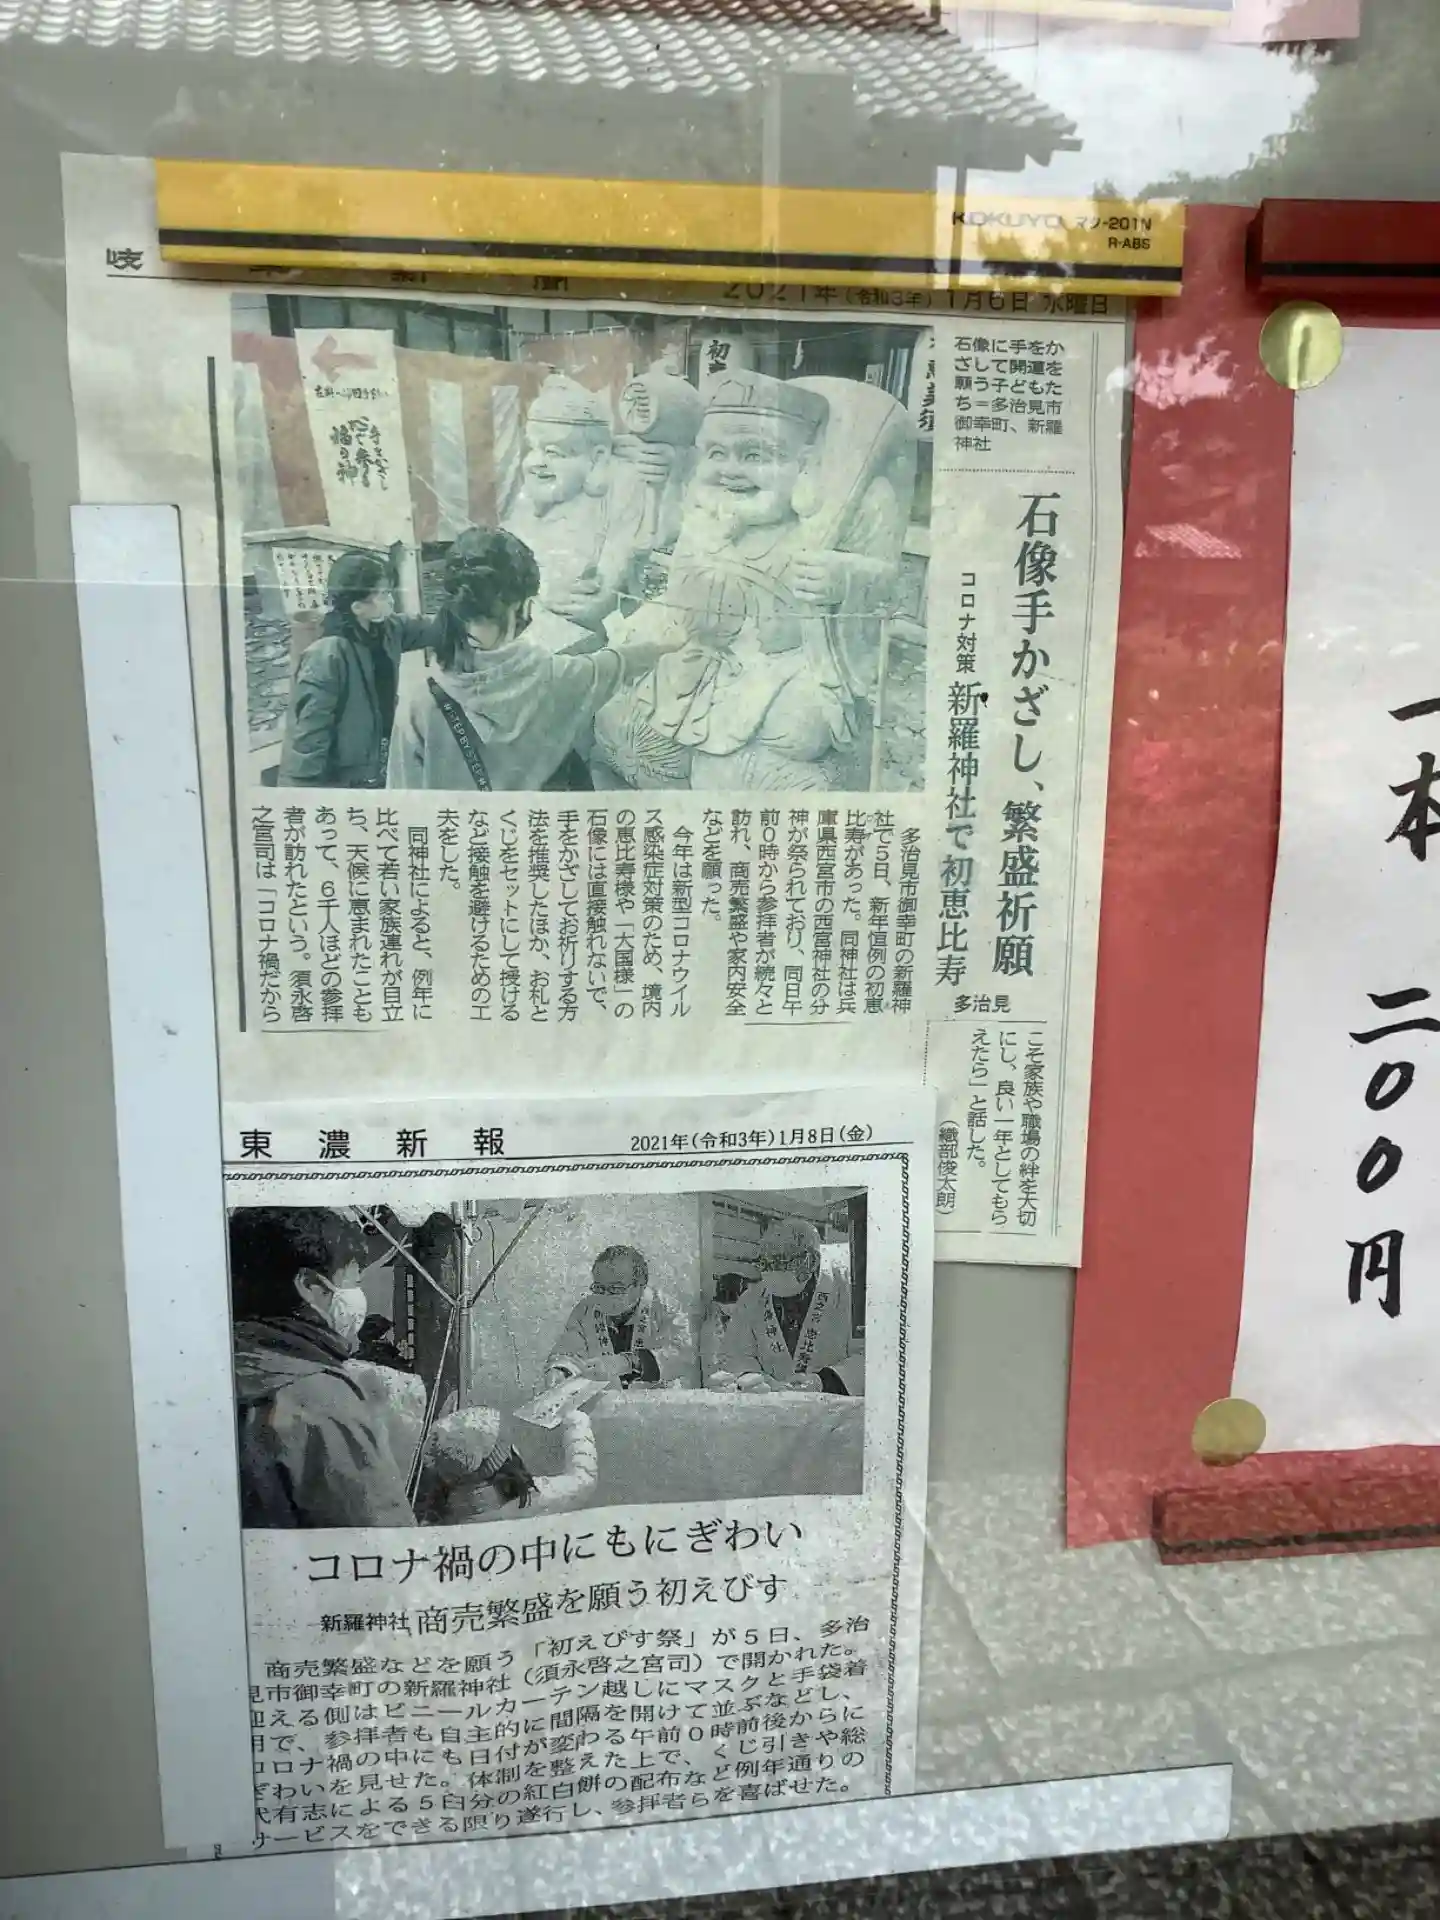 KOKUYO マク-201N
R-ABS
岐
2021年(令和3年)1月6日 水曜日
石像に手をか
ざして開運を
願う子どもた
ち＝多治見市
御幸町、新羅
神社
石像手かざし、繁盛祈願
コロナ対策 新羅神社で初恵比寿
多治見
多治見市御幸町の新羅神
社で5日、新年恒例の初恵
比寿があった。同神社は兵
庫県西宮市の西宮神社の分
神が祭られており、同日午
前0時から参拝者が続々と
訪れ、商売繁盛や家内安全
などを願った。
今年は新型コロナウイル
ス感染症対策のため、境内
の恵比寿様や「大国様」の
石像には直接触れないで、
手をかざしてお祈りする方
法を推奨したほか、お札と
くじをセットにして授ける
など接触を避けるための工
夫をした。
同神社によると、例年に
比べて若い家族連れが目立
ち、天候に恵まれたことも
あって、6千人ほどの参拝
者が訪れたという。須永啓
之宮司は「コロナ禍だから
こそ家族や職場の絆を大切
にし、良い一年としてもら
えたら」と話した。
（織部俊太朗）
福の神
初
福
#STEP BY STEP#
東濃新報
2021年(令和3年)1月8日(金)
コロナ禍の中にもにぎわい
新羅神社 商売繁盛を願う初えびす
商売繁盛などを願う「初えびす祭」が5日、多治
見市御幸町の新羅神社（須永啓之宮司）で開かれた。
迎える側はビニールカーテン越しにマスクと手袋着
用で、参拝者も自主的に間隔を開けて並ぶなどし、
コロナ禍の中にも日付が変わる午前0時前後からに
ぎわいを見せた。体制を整えた上で、くじ引きや総
代有志による5臼分の紅白餅の配布など例年通りの
サービスをできる限り遂行し、参拝者らを喜ばせた。
一本 二〇〇円